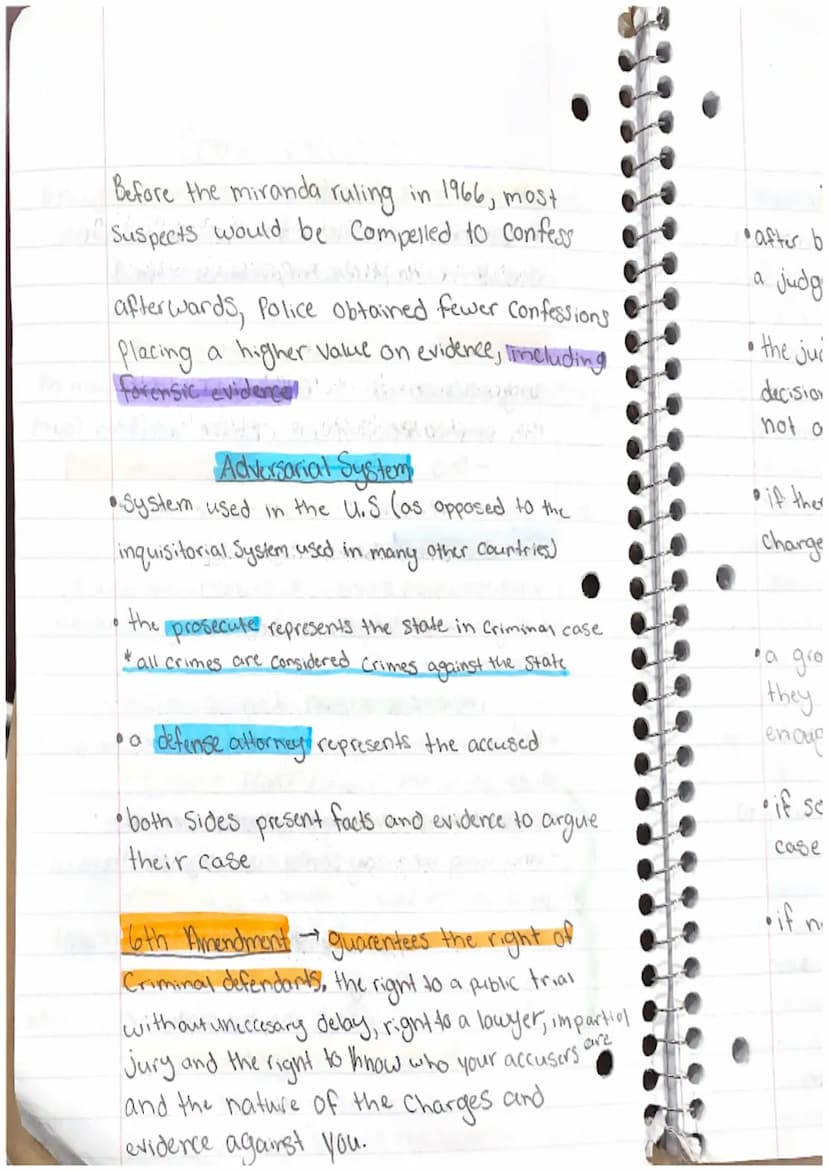 Before the miranda ruling in 1966, most
suspects would be compelled to confess
afterwards, Police obtained fewer confessions
placing a higher value on evidence, including
forensic evidence
Adversarial System
• System used in the U.S (as opposed to the
inquisitorial System used in many other countries)
• the prosecute represents the state in criminal case
* all crimes are considered crimes against the state
• a defense attorney represents the accused
• both sides present facts and evidence to argue
their case
6th Amendment → guarentees the right of
Criminal defendants, the right to a public trial
without uneccesary delay, right to a lawyer, impartial
jury and the right to know who your accusers are
and the nature of the charges and
evidence against you.
• after b
a judg
• the ju
decision
not a
• if ther
charge
• a gro
they
enoug
• if so
case
• if n